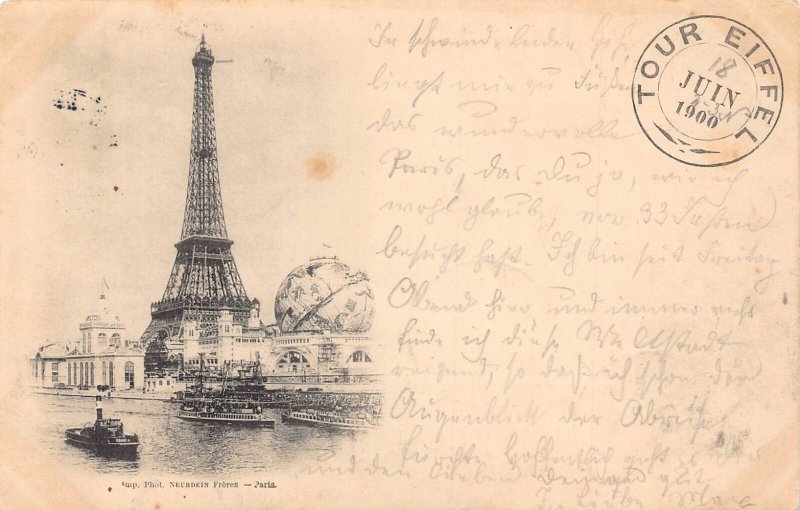 TOUR EIFFEL
18
JUIN
1900
In schwindelnder Höhe
liegt mir zu Füßen
das wundervolle
Paris, das Du ja, wie ich
wohl glaube, vor 33 Jahren
besucht hast. Ich bin seit Freitag
Abend hier und immer mehr
finde ich diese Weltstadt
reizend, so daß ich schon den
Augenblick der Abreise
fürchte. Hoffentlich geht es Dir
und den Lieben gut
In Liebe Max
Imp. Phot. NEURDEIN Frères — Paris.